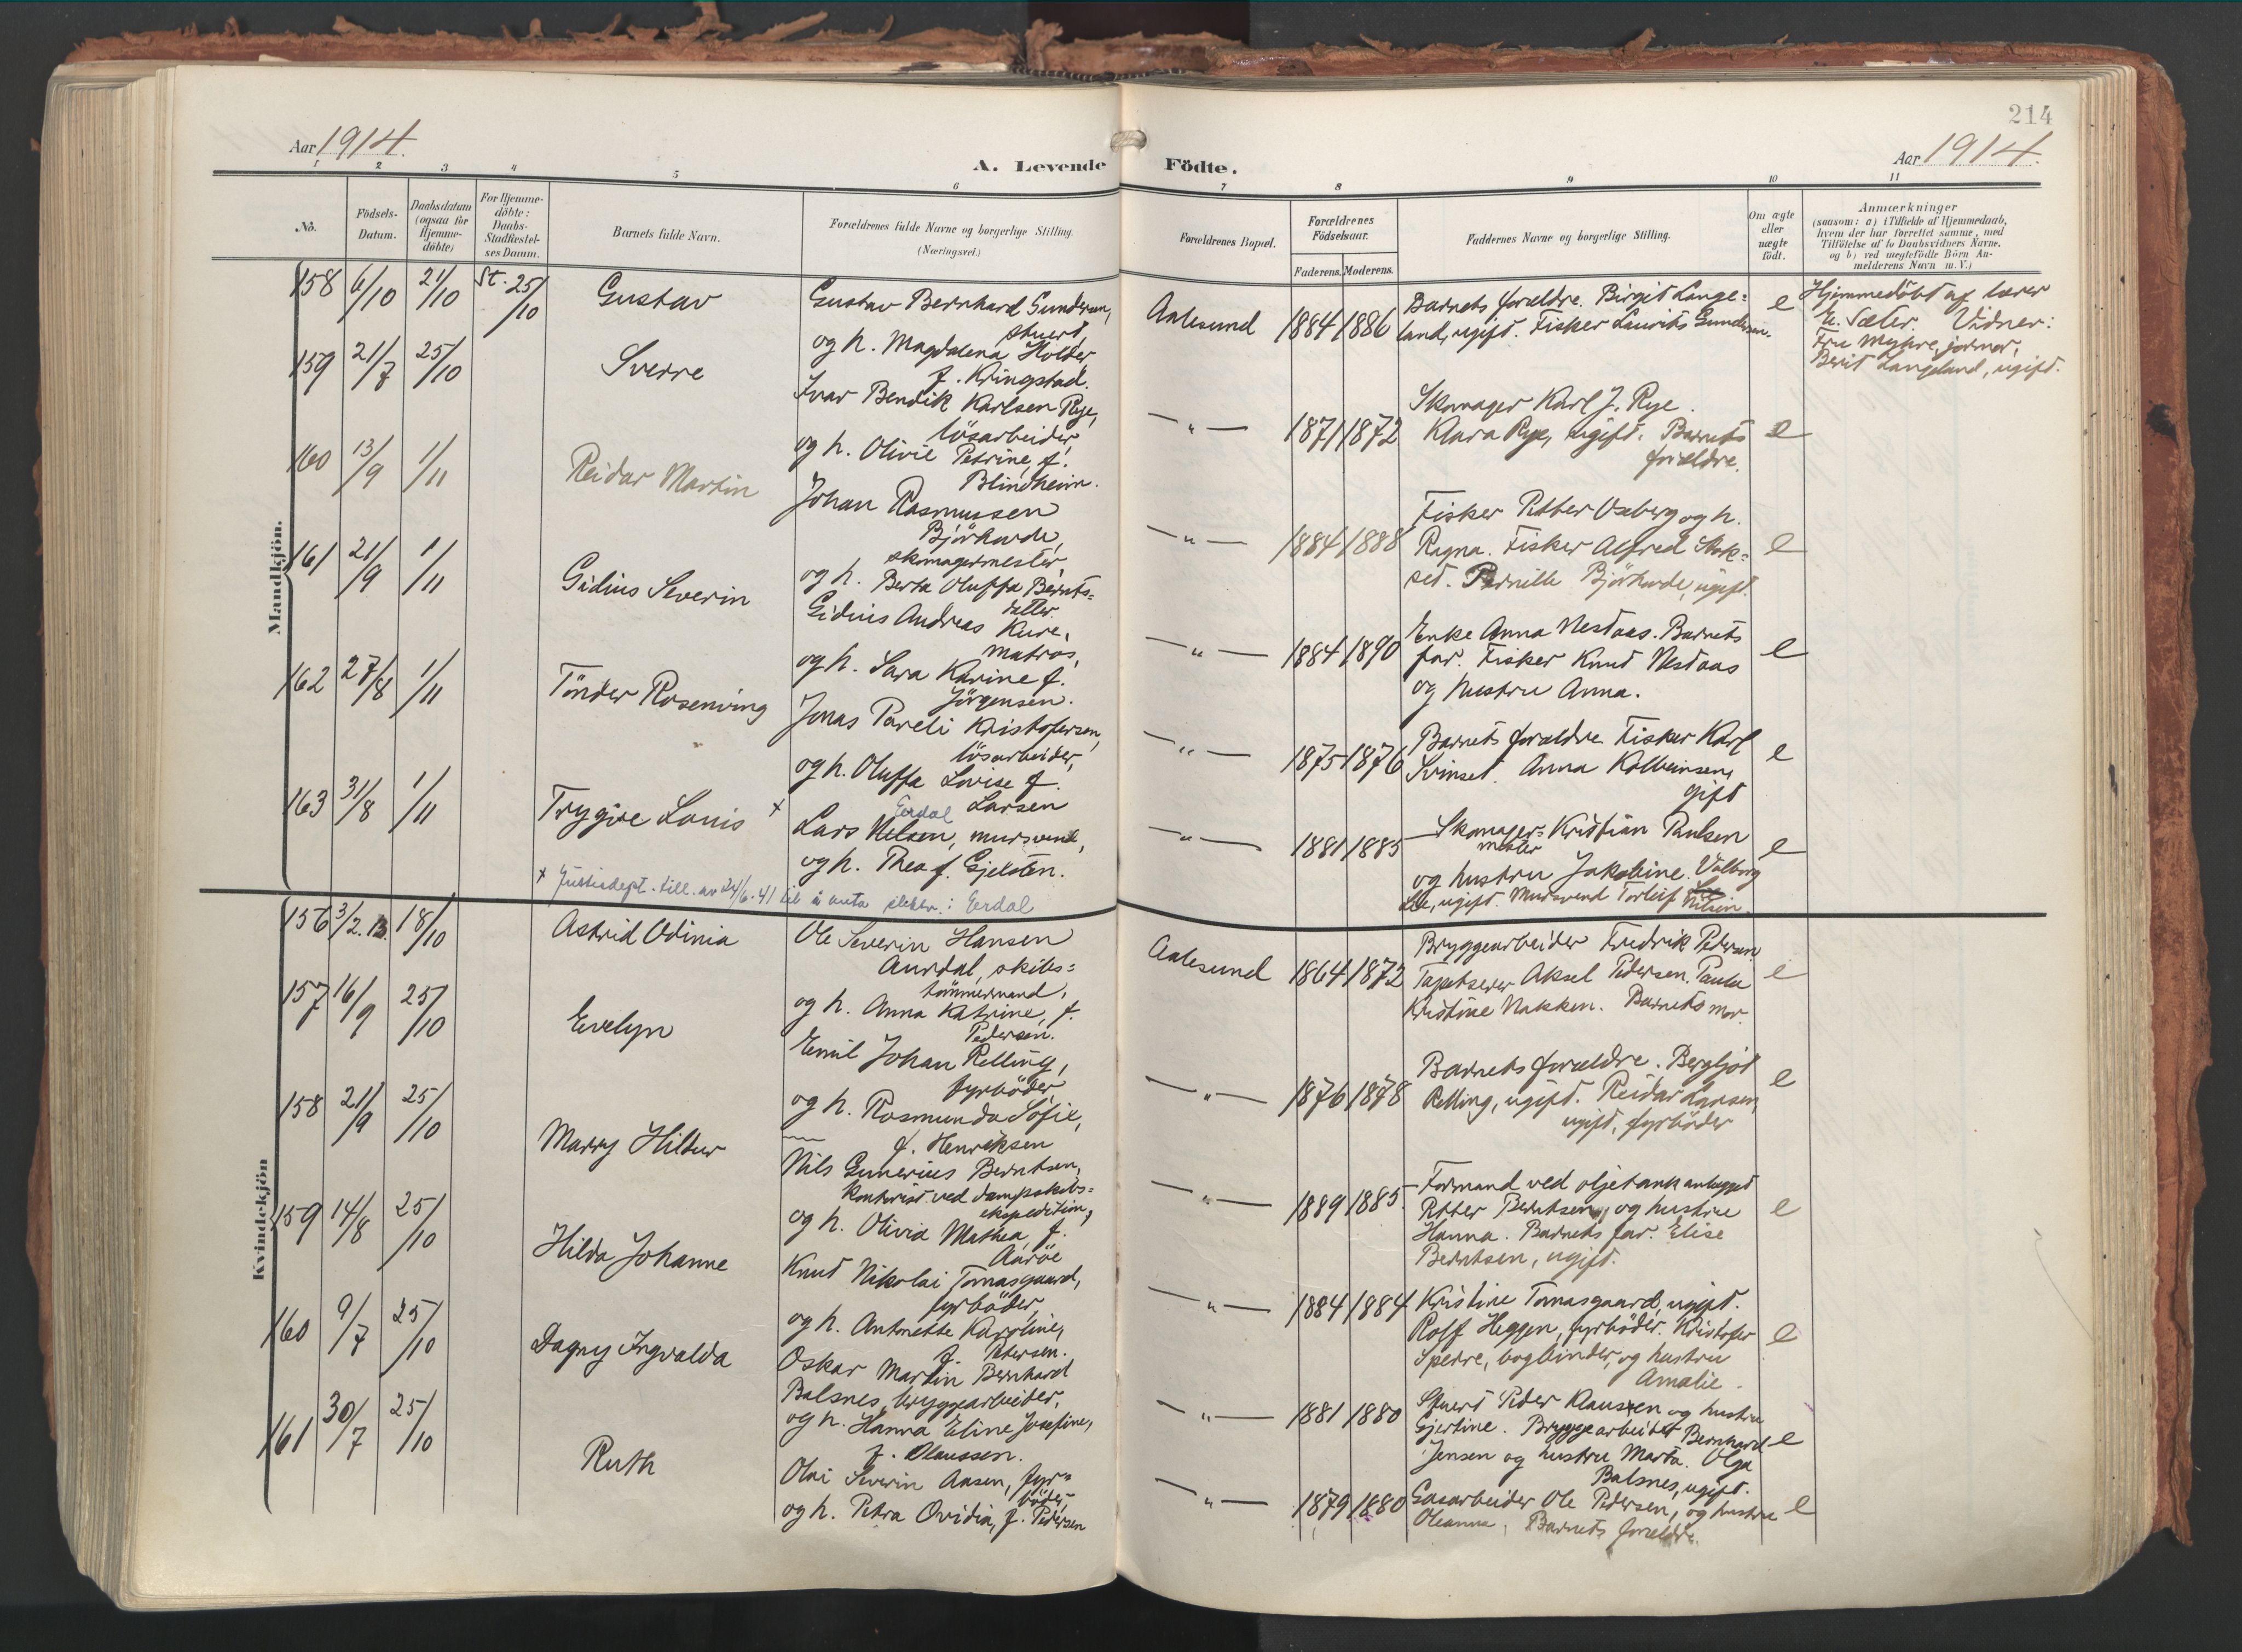 214
Aar 1914.
A. Levende Födte.
Aar 1914.
1 2 3 4 5 6 7 8 9 10 11
No.
Födsels-Datum.
Daabsdatum (ogsaa for Hjemme-döbte)
For Hjemme-döbte: Daabs-Stadfæstel-ses Datum.
Barnets fulde Navn.
Forældrenes fulde Navne og borgerlige Stilling. (Næringsvei.)
Forældrenes Bopæl.
Forældrenes Födselsaar.
Faderens. Moderens.
Faddernes Navne og borgerlige Stilling.
Om ægte eller uægte födt.
Anmærkninger
(saasom: a) i Tilfælde af Hjemmedaab,
hvem der har forrettet samme, med
Tilföielse af to Daabsvidners Navne.
og b) ved uægtefödte Börn An-
melderens Navn m. V.)
Mandkjön.
158 6/10 21/10 St. 25/10 Gustav
Gustav Bernhard Gundersen,
stuert,
og h. Magdalena Holder,
f. Kringstad.
Aalesund 1884 1886
Barnets forældre. Birgit Lange=
land, ugift. Fisker Laurits Gundersen.
e
Hjemmedöbt af lærer
E. Sæter. Vidner:
Fru Myhre, jormor,
Berit Langeland, ugift.
159 21/7 25/10 Sverre
Ivar Bendik Karlsen Rye,
lösarbeider,
og h. Olivie Petrine, f.
Blindheim.
— " — 1871 1872
Skomager Karl J. Rye.
Klara Rye, ugift. Barnets
forældre.
e
160 13/9 1/11 Reidar Martin
Johan Rasmussen
Björkavde,
skomagermester,
og h. Berta Oluffa Bernts=
datter.
— " — 1884 1888
Fisker Petter Oxberg og h.
Ragna. Fisker Alfred Stok=
set. Pernille Björkavde, ugift.
e
161 21/9 1/11 Gidius Severin
Gidius Andreas Kure,
matros,
og h. Sara Karine f.
Jörgensen.
— " — 1884 1890
Enke Anna Nestaas. Barnets
far. Fisker Knut Nestaas
og hustru Anna.
e
162 27/8 1/11 Tönder Rosenving
Jonas Pareli Kristofersen,
lösarbeider,
og h. Oluffa Lovise f.
Larsen
— " — 1875 1876
Barnets forældre. Fisker Karl
Svinset. Anna Kolbeinsen,
gift
e
163 31/8 1/11 Trygve Louis x
Eerdal
Lars Nelsen, mursvend,
og h. Thea f. Gjelsten.
— " — 1881 1885
Skomager=
mester Kristian Paulsen
og hustru Jakobine. Valborg
Lie, ugift. Mursvend Torleif Nilsen.
e
x Justisdept. till. av 24/6-41 til å anta slektsn.: Eerdal
Kvindekjön
156 3/2.13. 18/10 Astrid Odinia
Ole Severin Hansen
Aurdal, skibs=
tömmermand,
og h. Anna Katrine, f.
Pedersen.
Aalesund 1864 1872
Bryggearbeider Fredrik Pedersen.
Tapetserer Aksel Pedersen. Paula
Kristine Nakken. Barnets mor.
e
157 16/9 25/10 Evelyn
Emil Johan Relling,
fyrböder,
og h. Rasmunda Sofie,
f. Henriksen
— " — 1876 1878
Barnets forældre. Bergljot
Relling, ugift. Reidar Larsen,
ugift, fyrböder
e
158 21/9 25/10 Marry Hildur
Nils Gunerius Berntsen,
kontorist ved dampskibs=
ekspedition,
og h. Olivia Mathea, f.
Aaröe
— " — 1889 1885.
Formand ved oljetankanlægget
Petter Berntsen, og hustru
Hanna. Barnets far. Elise
Berntsen, ugift.
e
159 14/8 25/10 Hilda Johanne
Knut Nikolai Tomasgaard,
fyrböder,
og h. Antonette Karoline,
f. Petersen.
— " — 1884 1884
Kristine Tomasgaard, ugift.
Rolf Heggen, fyrböder. Kristofer
Sperre, bogbinder, og hustru
Amalie.
e
160 9/7 25/10 Dagny Ingvalda
Oskar Martin Bernhard
Balsnes, bryggearbeider,
og h. Hanna Eline Josefine,
f. Olaussen.
— " — 1881 1880
Stuert Peder Klausen og hustru
Gjertine. Bryggearbeider Bernhard
Jensen og hustru Marta. Olga
Balsnes, ugift.
e
161 30/7 25/10 Ruth
Olai Severin Aasen, fyr=
böder,
og h. Petra Ovidia, f. Pedersen
— " — 1879 1880
Gasarbeider Ole Pedersen, og hustru
Oleanna. Barnets forældre.
e